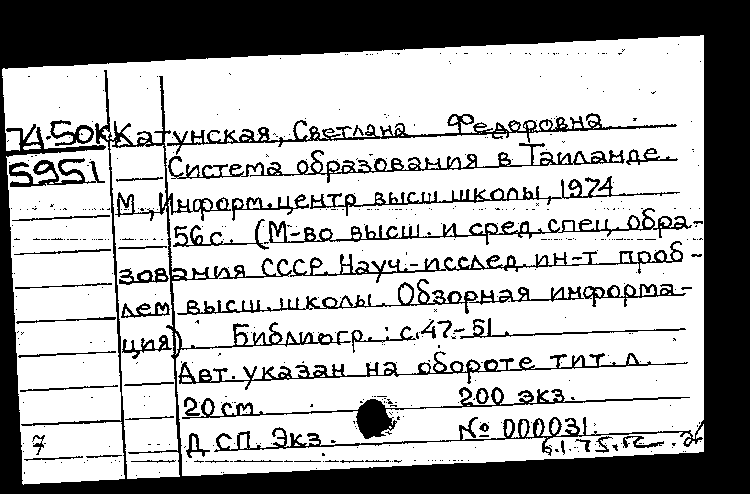 74.50К Катунская, Светлана Федоровна
5951 Система образования в Таиланде.
М., Информ.центр высш.школы, 1974
56с. (М-во высш. и сред.спец.обра-
зования СССР. Науч.-исслед.ин-т проб-
лем высш.школы. Обзорная информа-
ция). Библиогр.: с.47-51.
Авт.указан на обороте тит.л.
20см. 200 экз.
7 ДСП. Экз. № 000031.